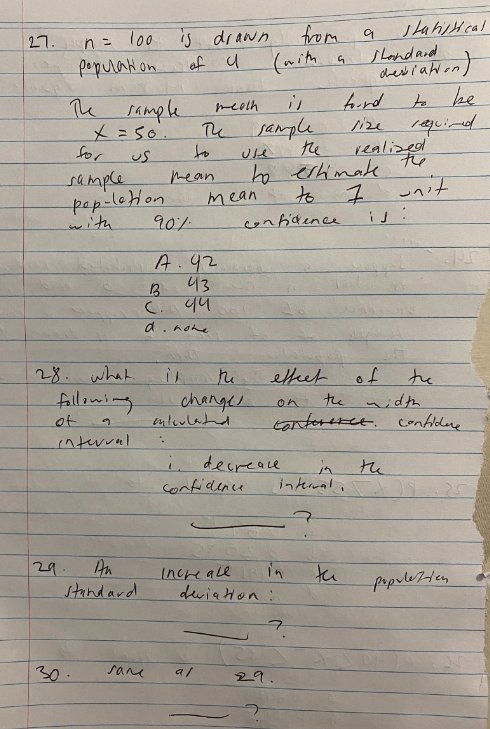 27. n = 100 is drawn from a statistical
population of 4 (with a standard
deviation)
The sample mean is found to be
x = 50. The sample size required
for us to use the realized
sample mean to estimate the
population mean to 1 unit
with 90% confidence is:
A. 42
B 43
C. 44
d. none
28. what is the effect of the
following changes on the width
of a calculated conference. confidence
interval :
i. decrease in the
confidence interval.
?
29. An increase in the population
standard deviation:
?
30. same as 29.
?